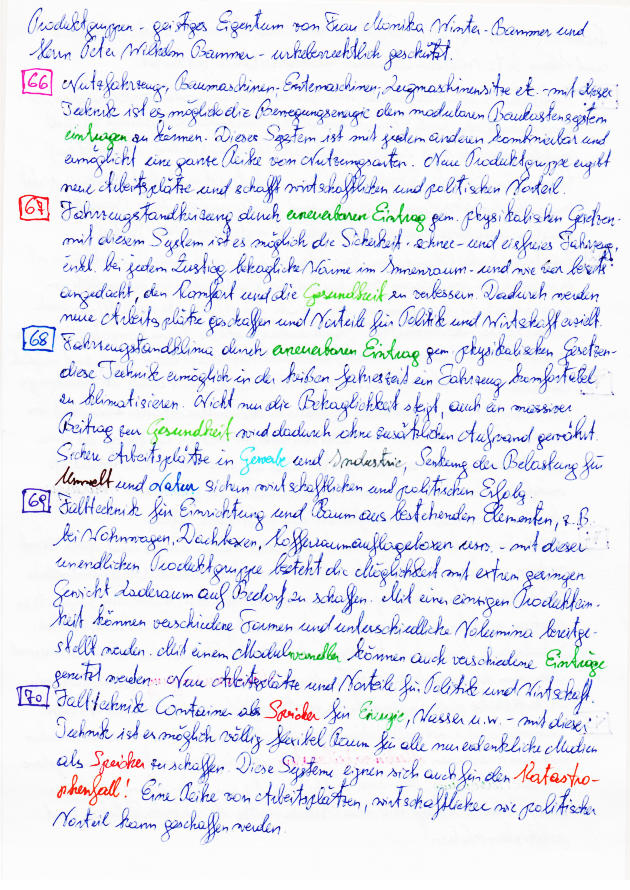 Produktgruppen - geistiges Eigentum von Frau Monika Winter-Bammer und
Herrn Peter Wilhelm Bammer - urheberrechtlich geschützt.
66 Nutzfahrzeug, Baumaschinen, Erntemaschinen, Zugmaschinensitze etc. - mit dieser
Technik ist es möglich die Bewegungsenergie dem modularen Baukastensystem
eintragen zu können. Dieses System ist mit jedem anderen kombinierbar und
ermöglicht eine ganze Reihe von Nutzungsarten. Neue Produktgruppe ergibt
neue Arbeitsplätze und schafft wirtschaftlichen und politischen Vorteil.
67 Fahrzeugstandheizung durch erneuerbaren Eintrag gem. physikalischen Gesetzen-
mit diesem System ist es möglich die Sicherheit - schnee- und eisfreies Fahrzeug,
inkl. bei jedem Zustieg behagliche Wärme im Innenraum - und wie bereits
angedacht, den Komfort und die Gesundheit zu verbessern. Dadurch werden
neue Arbeitsplätze geschaffen und Vorteile für Politik und Wirtschaft erzielt.
68 Fahrzeugstandklima durch erneuerbaren Eintrag gem. physikalischen Gesetzen-
diese Technik ermöglich in der heißen Jahreszeit ein Fahrzeug komfortabel
zu klimatisieren. Nicht nur die Behaglichkeit steigt, auch ein massiver
Beitrag zur Gesundheit wird dadurch ohne zusätzlichen Aufwand gewährt.
Sichere Arbeitsplätze in Gewerbe und Industrie, Senkung der Belastung für
Umwelt und Natur sichern wirtschaftlichen und politischen Erfolg.
69 Falttechnik für Einrichtung und Raum aus bestehenden Elementen, z.B.
bei Wohnwagen, Dachboxen, Kofferraumauflageboxen usw. - mit dieser
unendlichen Produktgruppe besteht die Möglichkeit mit extrem geringen
Gewicht Laderaum auf Bedarf zu schaffen. Mit einer einzigen Produktein-
heit können verschiedene Formen und unterschiedliche Volumina bereitge-
stellt werden. Mit einem Modulwandler können auch verschiedene Einträge
genützt werden. Neue Arbeitsplätze und Vorteile für Politik und Wirtschaft.
70 Falttechnik Container als Speicher für Energie, Wasser u.w. - mit dieser
Technik ist es möglich völlig flexibel Raum für alle nur erdenkliche Medien
als Speicher zu schaffen. Diese Systeme eignen sich auch für den Katastro-
phenfall! Eine Reihe von Arbeitsplätzen, wirtschaftlicher wie politischer
Vorteil kann geschaffen werden.